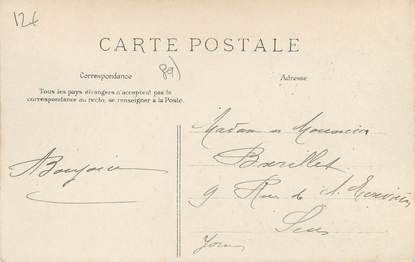 12€
CARTE POSTALE
Correspondance
89)
Adresse
Tous les pays étrangers n'acceptent pas la
correspondance au recto, se renseigner à la Poste.
Madame Monsieur
Barillet
9 Rue de
Sens
Yonne